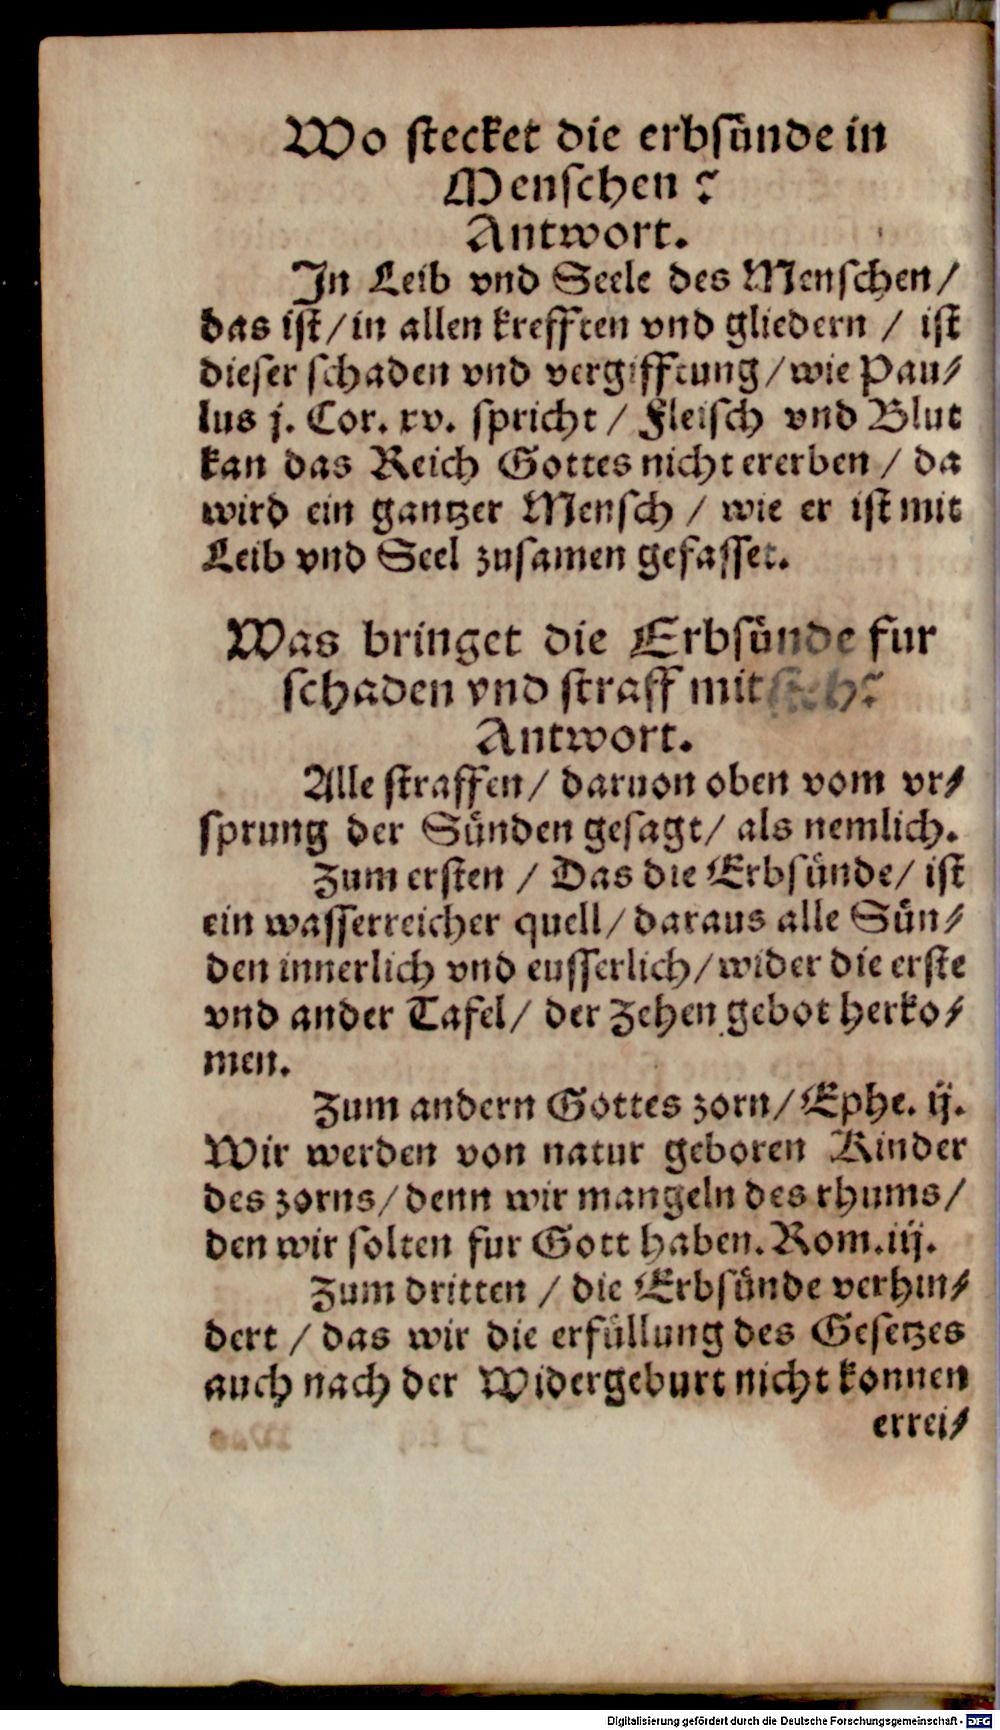 Wo stecket die erbsünde in
Menschen?
Antwort.
In Leib vnd Seele des Menschen/
das ist/in allen krefften vnd gliedern / ist
dieser schaden vnd vergifftung/wie Pau-
lus j. Cor. xv. spricht / Fleisch vnd Blut
kan das Reich Gottes nicht ererben / da
wird ein gantzer Mensch / wie er ist mit
Leib vnd Seel zusamen gefasset.
Was bringet die Erbsünde fur
schaden vnd straff mit sich?
Antwort.
Alle straffen/ daruon oben vom vr-
sprung der Sünden gesagt/ als nemlich.
Zum ersten / Das die Erbsünde/ ist
ein wasserreicher quell/ daraus alle Sün-
den innerlich vnd eusserlich/wider die erste
vnd ander Tafel/ der Zehen gebot herko-
men.
Zum andern Gottes zorn/ Ephe. ij.
Wir werden von natur geboren Kinder
des zorns/denn wir mangeln des rhums/
den wir solten fur Gott haben. Rom.iij.
Zum dritten / die Erbsünde verhin-
dert / das wir die erfüllung des Gesetzes
auch nach der Widergeburt nicht konnen
errei-
Digitalisierung gefördert durch die Deutsche Forschungsgemeinschaft - DFG